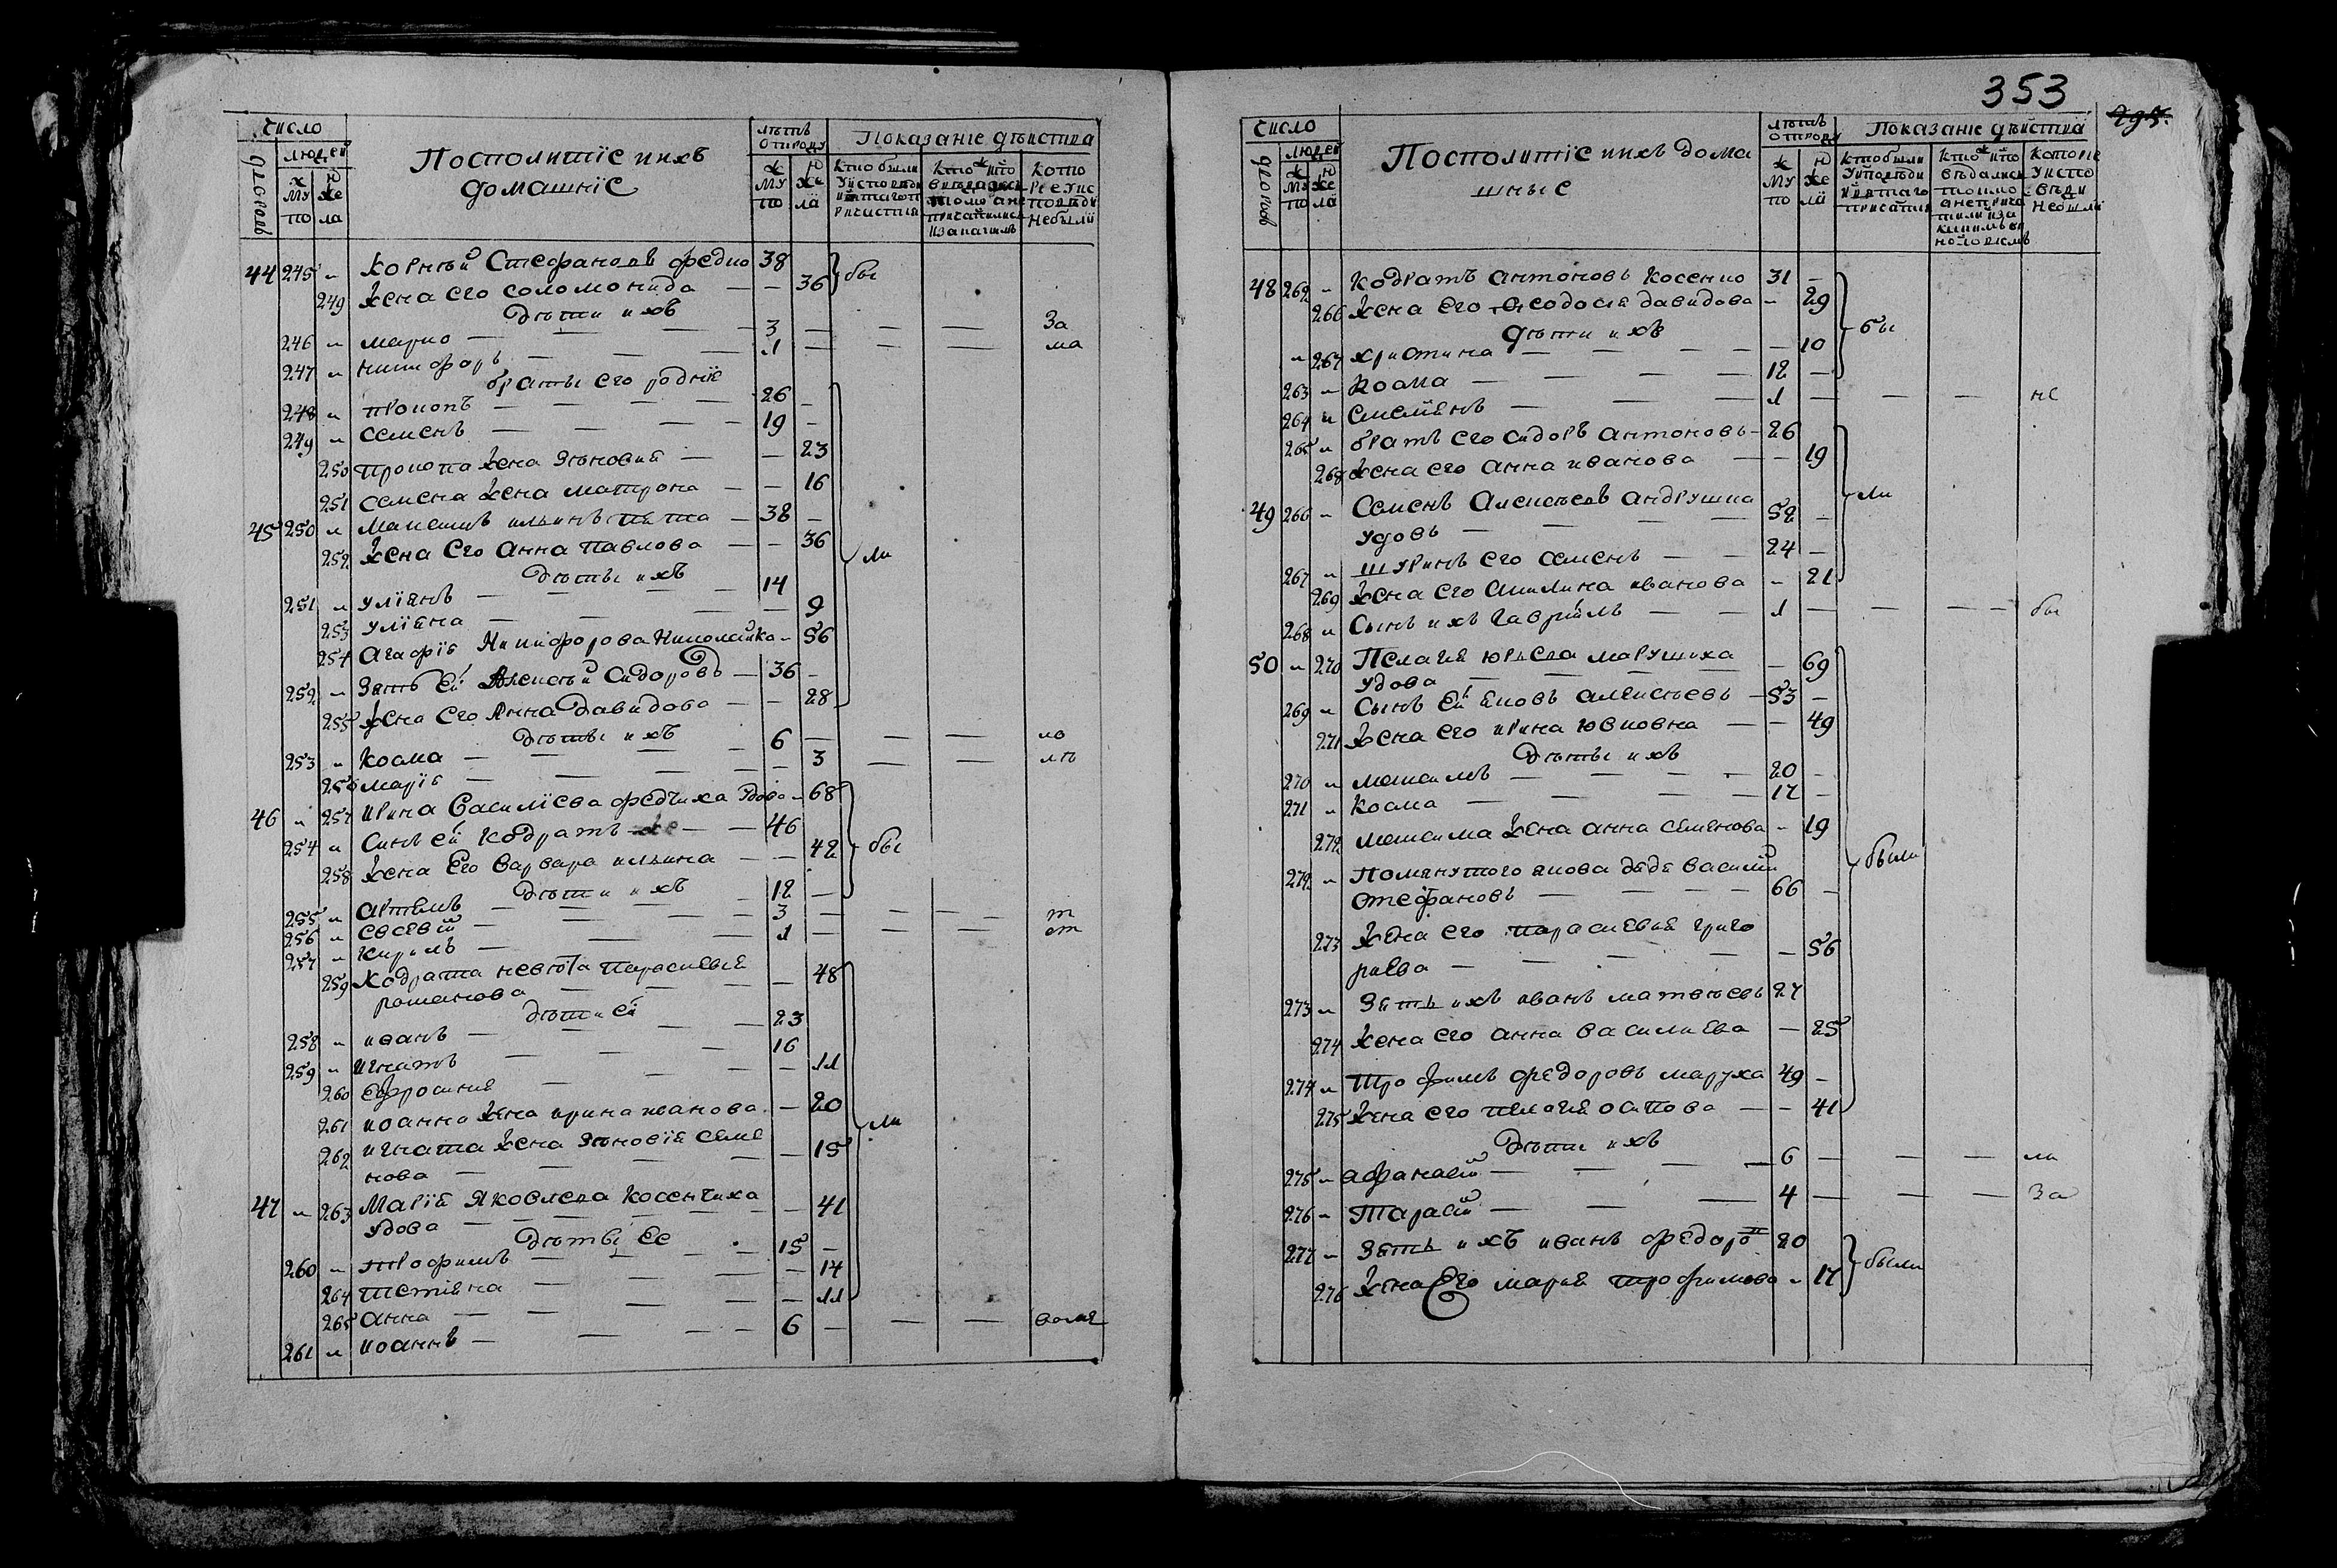 число
дворовъ
людей
муж по
жен ла
Посполитїе ихъ
домашнїе
лѣтъ
отроду
муж по
жен ла
Показанїе дѣйства
44 245 " Корнѣй Стефановъ федко 38
249 Жена его соломонида — — 36 } бы
Дѣти ихъ
246 " марко — 3 — — — За
247 " никифоръ — — — 1 — — — ма
браты его роднїе
248 " прокопъ — — — — 26 —
249 " семенъ — — — — 19 —
250 прокопа жена Зѣновия — — 23
251 семена жена матрона — — 16
45 250 " Максимъ ильинъ — 38 —
252 Жена Его Анна Павлова — — 36 } ли
Дѣты ихъ
251 " улїянъ — — — — 14
253 улїяна — — — 9
254 Агафїя Никифорова — 56
252 " Зять Ей Алексѣй Сидоровъ — 36 —
255 Жена Его Анна Давидова — — 28
Дѣты ихъ
253 " Козма — — — — 6 — — — ло
256 марїя — — — — 3 — — лѣ
46 " 257 ирина Василїева федчиха Удова — 68
254 " Синъ ей Кодратъ — — 46
258 Жена Его Варвара ильина — — 42 } бы
Дѣти ихъ
255 " Артемъ — — — — 12 —
256 " Евсевїй — — — 3 — — — — т
257 " Кирилъ — — — 1 — — — ет
259 Кодрата невѣста Параскевия
романова — — — — 48
дѣти ей
258 " иванъ — — — 23
259 " игнатъ — — — 16
260 Ефросиния — — — — 11
261 иоанна жена ирина иванова — 20
262 игната жена Зѣновїя Семе
нова — — — — — 15 } ли
47 " 263 Марїя Яковлева Косенчиха
удова — — — — — 41
Дѣты Ее
260 " трофимъ — — — 15 —
264 тетияна — — — — 14
265 Анна — — — — 11
261 " иоаннъ — — — — 6 — — —
353
295.
число
дворовъ
людей
муж по
жен ла
Посполитїе ихъ дома
шные
лѣтъ
отроду
муж по
жен ла
Показанїе дѣйствїя
48 262 " Кодратъ антоновъ Косенко 31 —
266 Жена Его Феодосия давидова — 29
Дѣти ихъ } бы
" 267 христина — — — — 10
263 " Козма — — — — 12 —
264 " Емелянъ — — — 1 — — — не
265 " братъ его сидоръ антоновъ — 26
268 Жена его анна иванова — — 19
49 266 " Семенъ Алексѣевъ андрушка
удовъ — — — — 52 — } ли
267 " шуринъ его семенъ — — 24 —
269 Жена его акилина иванова — 21
268 " Сынъ ихъ Гаврїилъ — — 1 — — — — бы
50 " 270 Пелагия юрьева марущиха
Удова — — — — — 69
269 " Сынъ ей яковъ алексѣевъ — 53 —
271 Жена его ирина — — 49
Дѣты ихъ
270 " максимъ — — — — 20 —
271 " Козма — — — — 17 —
272 максима жена анна семенова — 19
272 " Помянутого якова дядя василий
стефановъ — — — — 66 — } были
273 Жена его параскевия григо
риева — — — — — 56
273 " Зять ихъ иванъ матвѣевъ 27
274 Жена его анна василиева — 25
274 " Трофимъ федоровъ маруха 49 —
275 Жена его пелагия осипова — — 41
Дѣти ихъ
275 " афанасий — — — — 6 — — — ли
276 " Тарасий — — — 4 — — — За
277 " Зять ихъ иванъ федоро 20
276 Жена Его мария трофимова — 17 } были